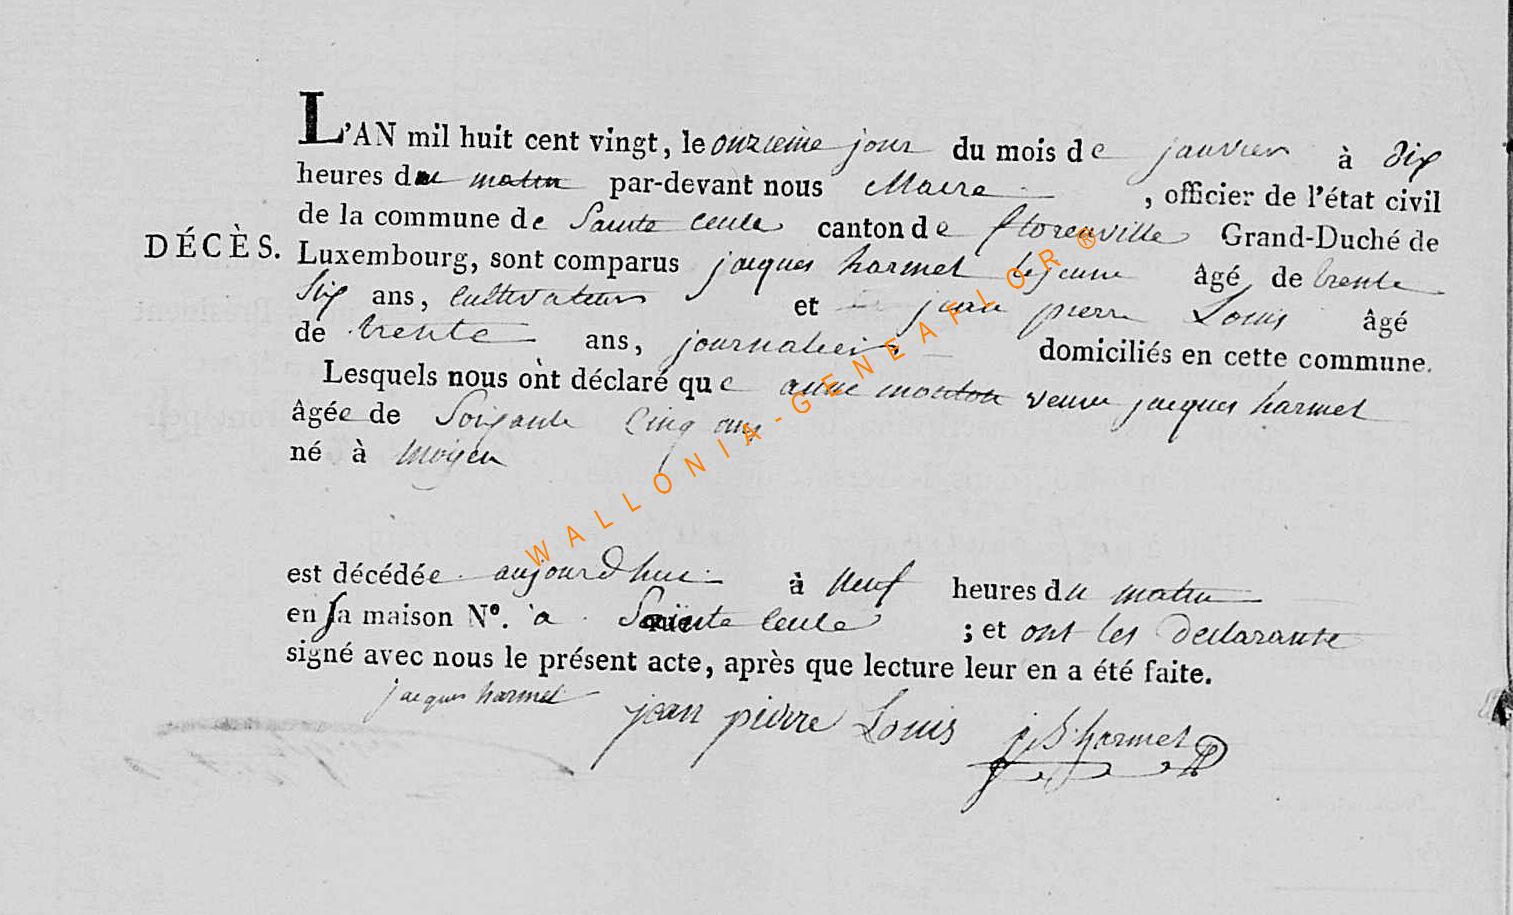 L'AN mil huit cent vingt, le onzieme jour du mois de janvier à dix
heures du matin par-devant nous Maire , officier de l'état civil
de la commune de Sainte Ceule canton de florenville Grand-Duché de
DÉCÈS. Luxembourg, sont comparus jacques harmel lejeune âgé de trente
Six ans, cultivateur et jean pierre Louis âgé
de trente ans, journalier domiciliés en cette commune.
Lesquels nous ont déclaré que anne mouton veuve jacques harmel
âgée de Soixante Cinq ans
né à Moyen
est décédée aujourdhui à Neuf heures du matin
en sa maison N°. a Sainte Ceule ; et ont les declarants
signé avec nous le présent acte, après que lecture leur en a été faite.
jacques harmel jean pierre Louis harmel
WALLONIA-GENEAFLOR®